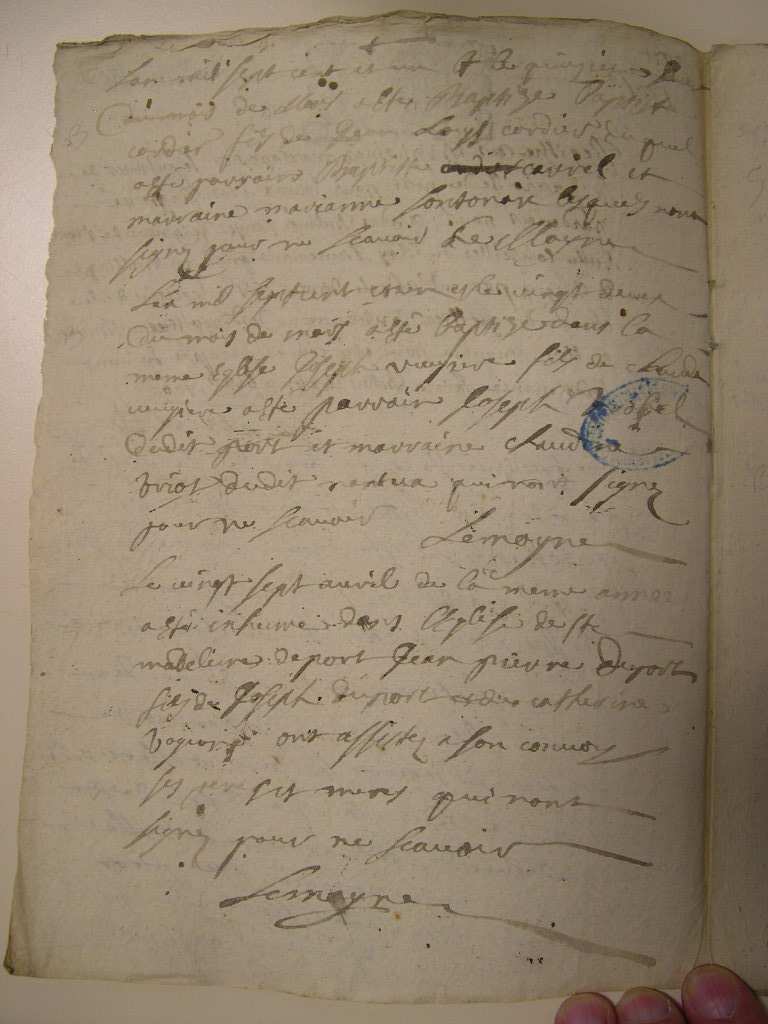 Lan mil sept cent et un & le
du mois de Mars a esté Baptize Baptiste
cordier fils de Jean Louys cordier du quel
a esté parrains Baptiste carrel et
marraine marianne lesquels nont
signez pour ne scavoir LeMoyne
Lan mil sept cent et un et le vingt deux
du mois de mars a esté baptize dans la
meme Eglise Joseph fils de claude
a esté parrain Joseph
dudit port et marraine claudine
briot dudit nantua qui nont signez
pour ne scavoir Lemoyne
Le vingt sept avril de la meme annee
a esté inhumé dans l'Eglise de ste
madeleine deport Jean pierre duport
fils de Joseph duport et de catherine
ont assistez a son convoy
ses et meres qui nont
signez pour ne scavoir
Lemoyne